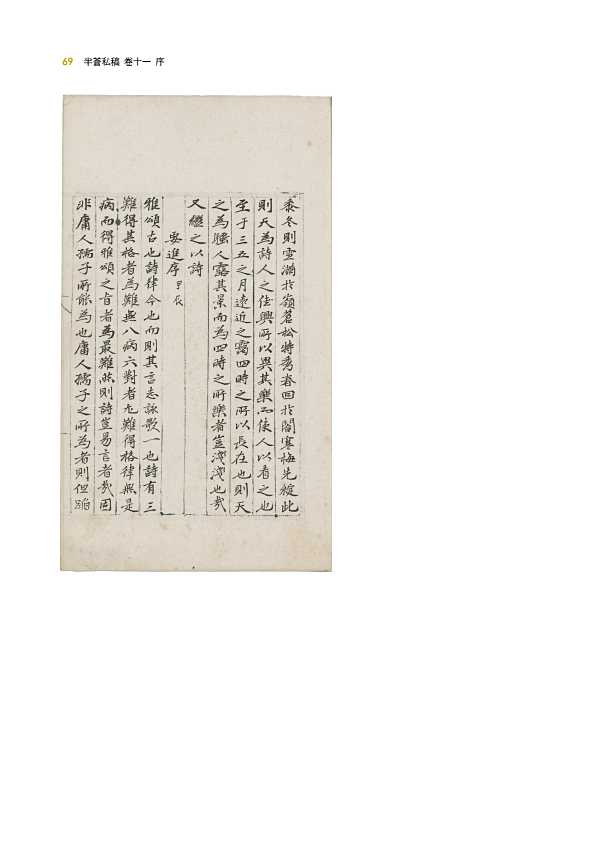 69 半薈私稿 卷十一 序
黍冬則雪滿於嶺蒼松特秀春回於閣寒梅先綻此
則天為詩人之佳興所以異其樂而使人以者之也
至于三五之月遠近之靄四時之所以長在也則天
之為騷人露其景而為四時之所樂者豈淺淺也哉
又繼之以詩
要進序 甲辰
雅頌古也詩律今也而則其言志詠歌一也詩有三
難得其格者為難無八病六對者尤難得格律無是
病而得雅頌之旨者為最難然則詩豈易言者哉固
非庸人孺子所能為也庸人孺子之所為者則但